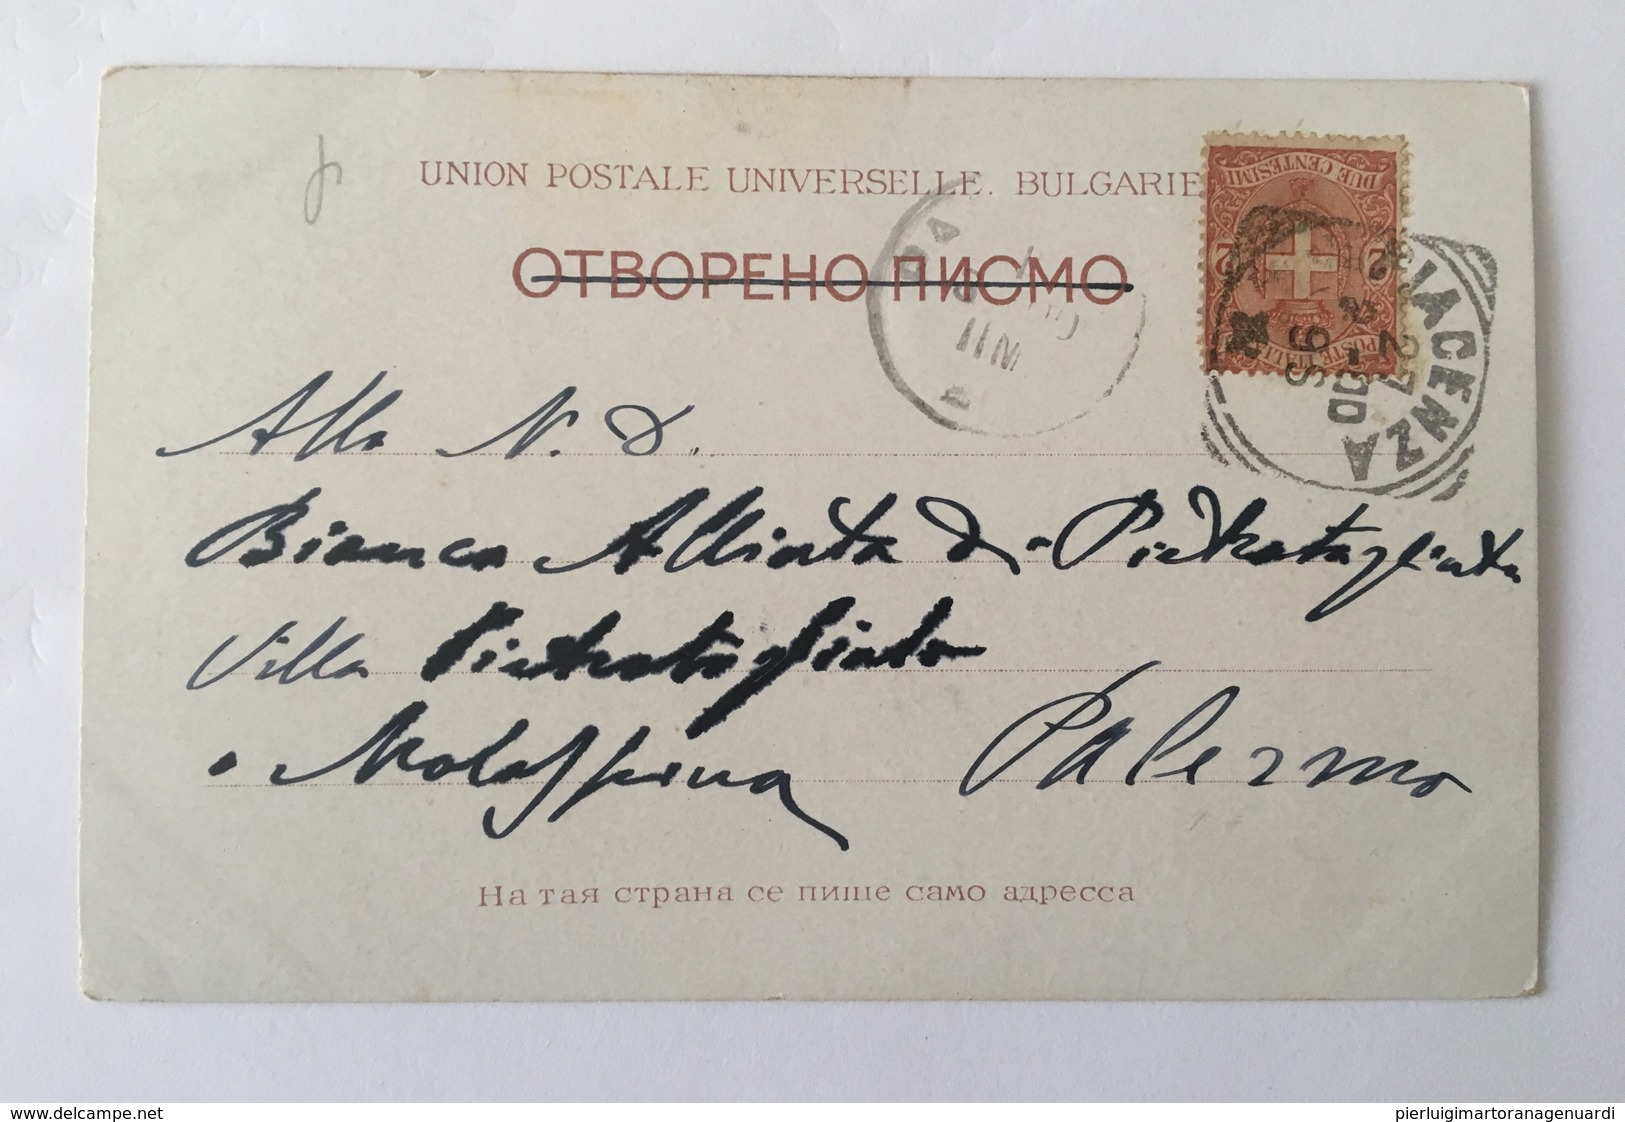 UNION POSTALE UNIVERSELLE. BULGARIE
ОТВОРЕНО ПИСМО
DUE CENTESIMI
2 2
POSTE ITALI
PIACENZA
Alla N. D.
Bianca Alliata di Pietratagliata
Villa Pietratagliata
Malaspina Palermo
На тая страна се пише само адресса
delcampe.net
pierluigimartoranagenuardi